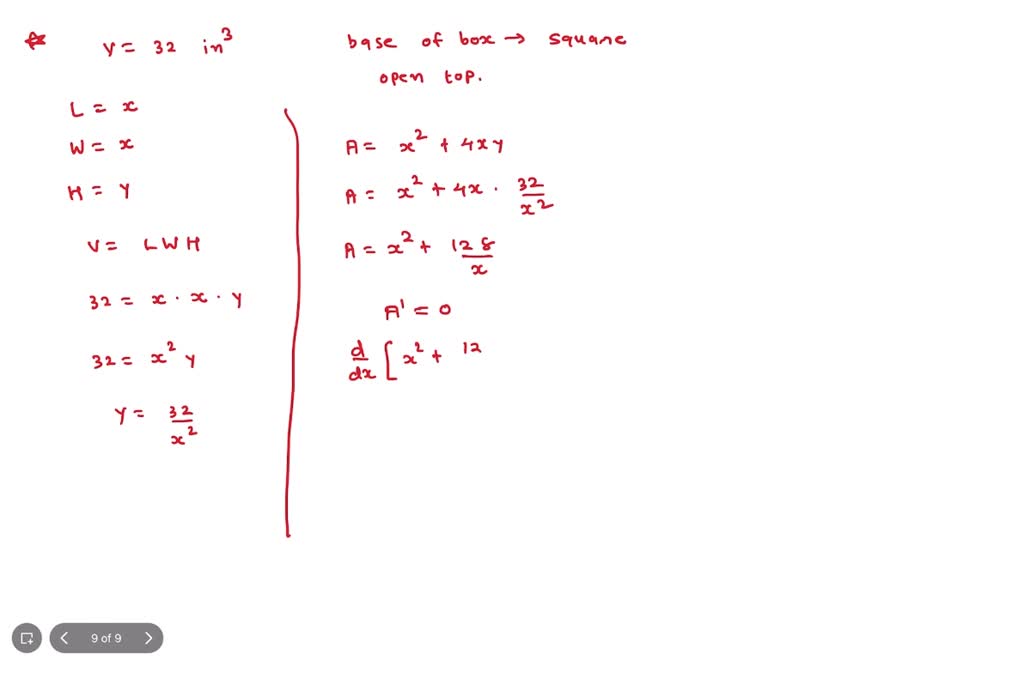 V = 32 in³
base of box → square
open top.
L = x
W = x
H = y
V = LWH
32 = x · x · y
32 = x² y
y = 32/x²
A = x² + 4xy
A = x² + 4x · 32/x²
A = x² + 128/x
A' = 0
d/dx [x² + 12
9 of 9